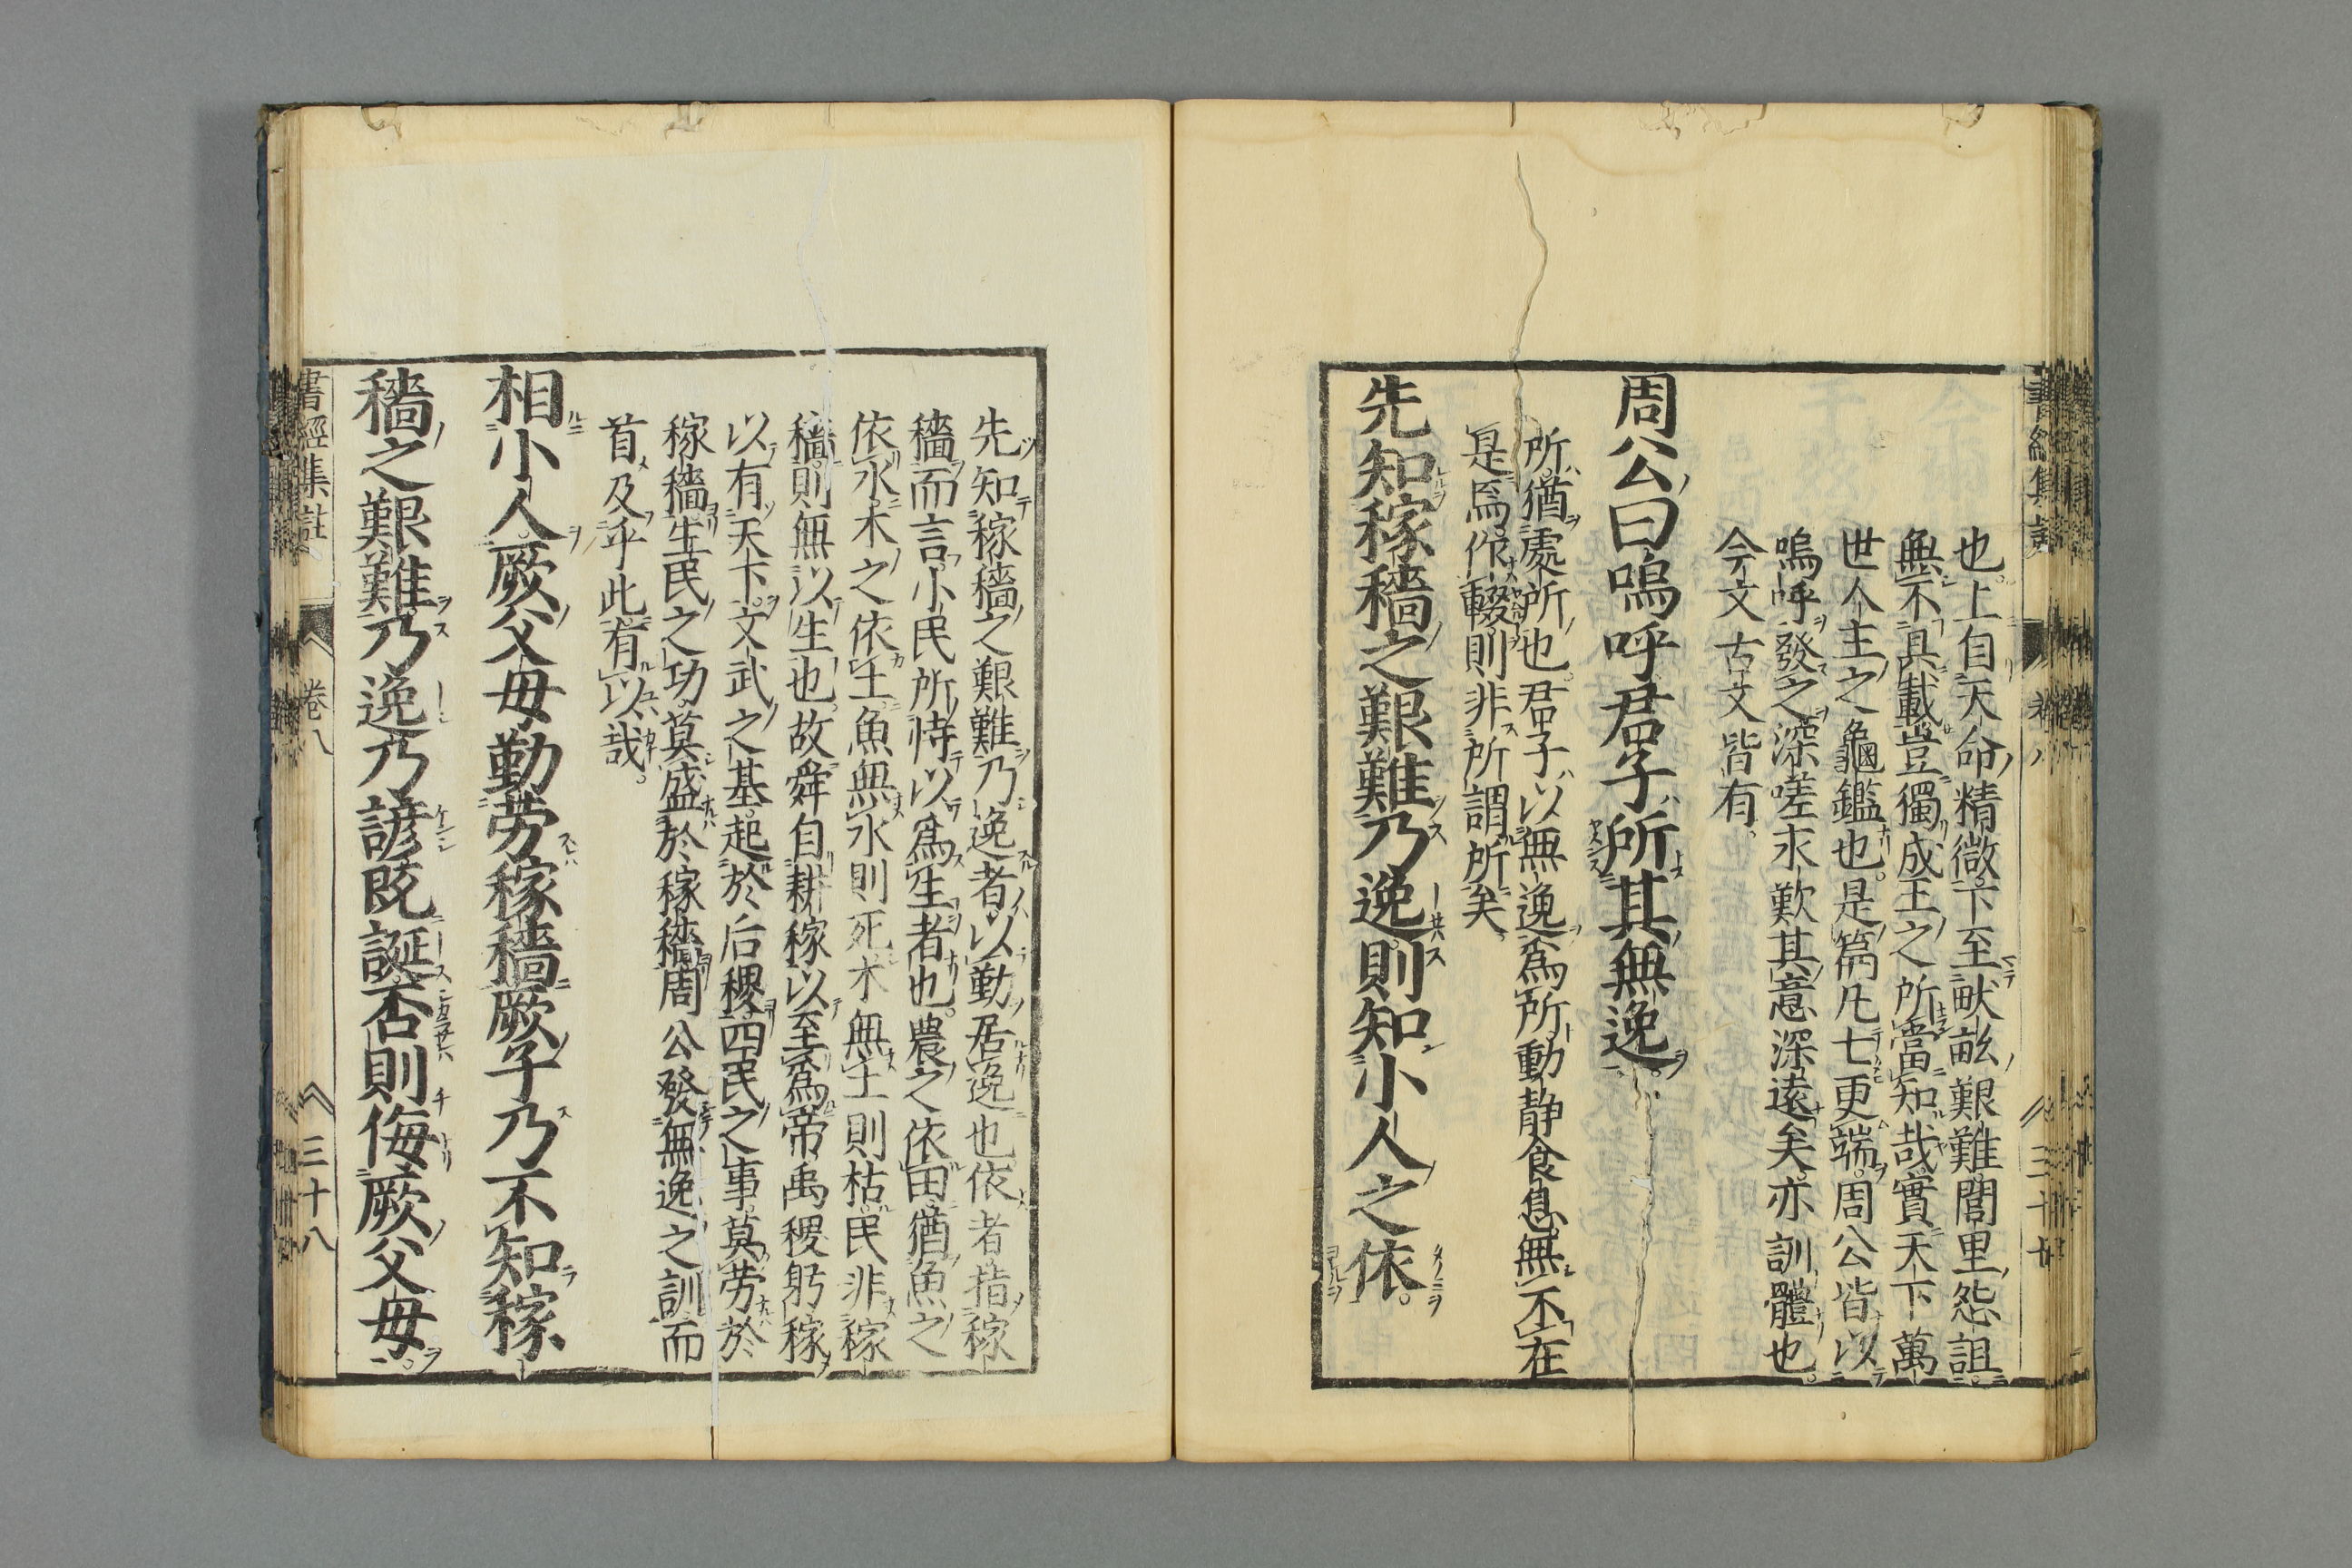 也上自天命精微下至畎畝艱難閭里怨詛
無不具載豈獨成王之所當知哉實天下萬
世人主之龜鑑也是篇凡七更端周公皆以
嗚呼發之深嗟永歎其意深遠矣亦訓體也
今文古文皆有
周公曰嗚呼君子所其無逸
所猶處所也君子以無逸爲所動靜食息無不在
是焉作輟則非所謂所矣
先知稼穡之艱難乃逸則知小人之依
先知稼穡之艱難乃逸者以勤居逸也依者指稼
穡而言小民所恃以爲生者也農之依田猶魚之
依水木之依土魚無水則死木無土則枯民非稼
穡則無以生也故舜自耕稼以至爲帝禹稷躬稼
以有天下文武之基起於后稷四民之事莫勞於
稼穡生民之功莫盛於稼穡周公發無逸之訓而
首及乎此有以哉
相小人厥父母勤勞稼穡厥子乃不知稼
穡之艱難乃逸乃諺既誕否則侮厥父母
書經集註 卷八 三十八